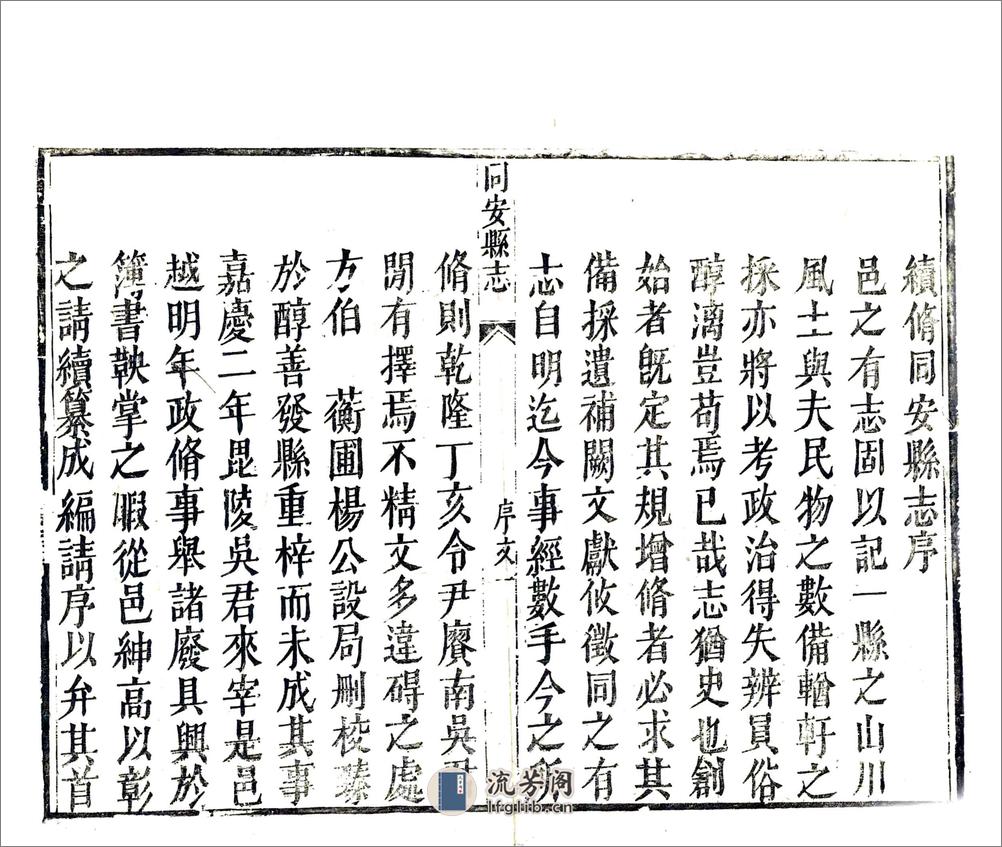 續脩同安縣志序
邑之有志固以記一縣之山川
風土與夫民物之數備輶軒之
採亦將以考政治得失辨員俗
醇漓豈苟焉已哉志猶史也創
始者既定其規增脩者必求其
備採遺補闕文獻攸徵同之有
志自明迄今事經數手今之所
同安縣志
序文
一
脩則乾隆丁亥令尹賡南吳君
閒有擇焉不精文多違碍之處
方伯 蘅圃楊公設局刪校臻
於醇善發縣重梓而未成其事
嘉慶二年毘陵吳君來宰是邑
越明年政脩事舉諸廢具興於
簿書鞅掌之暇從邑紳高以彰
之請續纂成編請序以弁其首
流芳阁
lfglib.cn